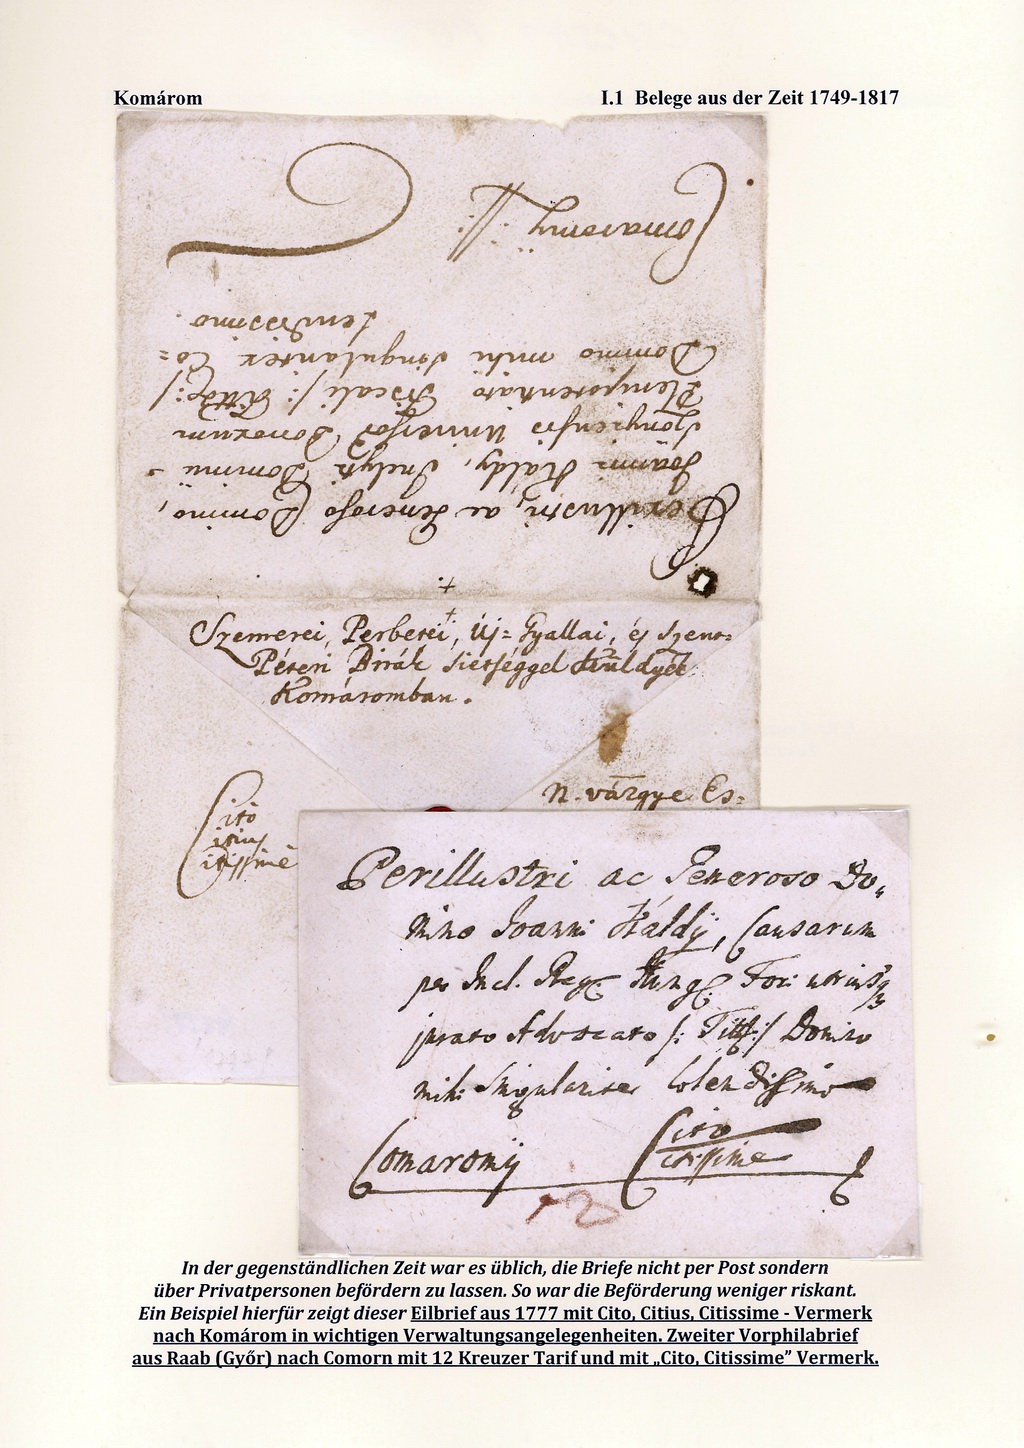 Komárom
I.1 Belege aus der Zeit 1749-1817
Comaromÿ
Perillustri, ac Generoso Domino,
Joanni Kaldy, Inclyti Dominii
Universor Bonorum
Plenipotentiato Fiscali /: Titt :/
Domino mihi singulariter Co=
lendissimo.
Szemerei, Perbetei, Új=Gyallai, és Szent=
Péteri Birák sietséggel küldgyék
Komáromban.
Cito
citius
citissime
N. várgye Es=
Perillustri ac Generoso Do„
mino Joanni Káldÿ, Causarum
per Incl. Reg. Hung. For. utriusq
jurato Advocato /: Titt :/ Domino
mihi Singulariter Colendissimo
Comaromÿ
Cito
citissime
12
In der gegenständlichen Zeit war es üblich, die Briefe nicht per Post sondern
über Privatpersonen befördern zu lassen. So war die Beförderung weniger riskant.
Ein Beispiel hierfür zeigt dieser Eilbrief aus 1777 mit Cito, Citius, Citissime - Vermerk
nach Komárom in wichtigen Verwaltungsangelegenheiten. Zweiter Vorphilabrief
aus Raab (Győr) nach Comorn mit 12 Kreuzer Tarif und mit „Cito, Citissime” Vermerk.